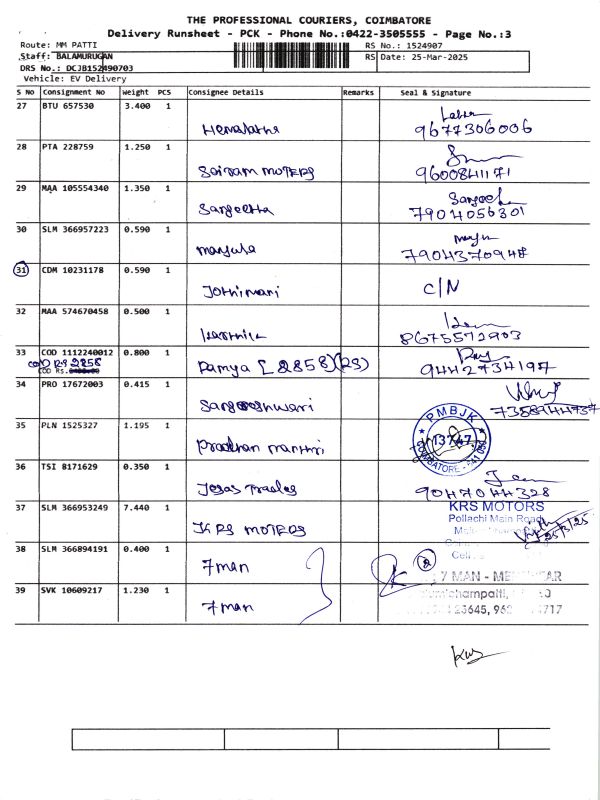 THE PROFESSIONAL COURIERS, COIMBATORE
Delivery Runsheet - PCK - Phone No.:0422-3505555 - Page No.:3
Route: MM PATTI RS No.: 1524907
Staff: BALAMURUGAN RS Date: 25-Mar-2025
DRS No.: DCJB152490703
Vehicle: EV Delivery
S No Consignment No Weight PCS Consignee Details Remarks Seal & Signature
27 BTU 657530 3.400 1
Hemalatha 9677306006
28 PTA 228759 1.250 1
Sairam MOTERS 9600841171
29 MAA 105554340 1.350 1 Sangeetha
Sangeetha 7904056301
30 SLM 366957223 0.590 1
Manjula 7904370948
31 CDM 10231178 0.590 1
Jothimani C/N
32 MAA 574670458 0.500 1
Karthika 8675572903
33 COD 1112240012 0.800 1
Ramya [2858)(RS) 9442734197
COD Rs.
34 PRO 17672003 0.415 1
7358944737
35 PLN 1525327 1.195 1 PMBJK
Pradhan manthri 13747
COIMBATORE
36 TSI 8171629 0.350 1
9047044328
37 SLM 366953249 7.440 1 KRS MOTORS
Pollachi Main Road
KRS MOTERS 25/3/25
38 SLM 366894191 0.400 1 2
7man 7 MAN
39 SVK 10609217 1.230 1
7man